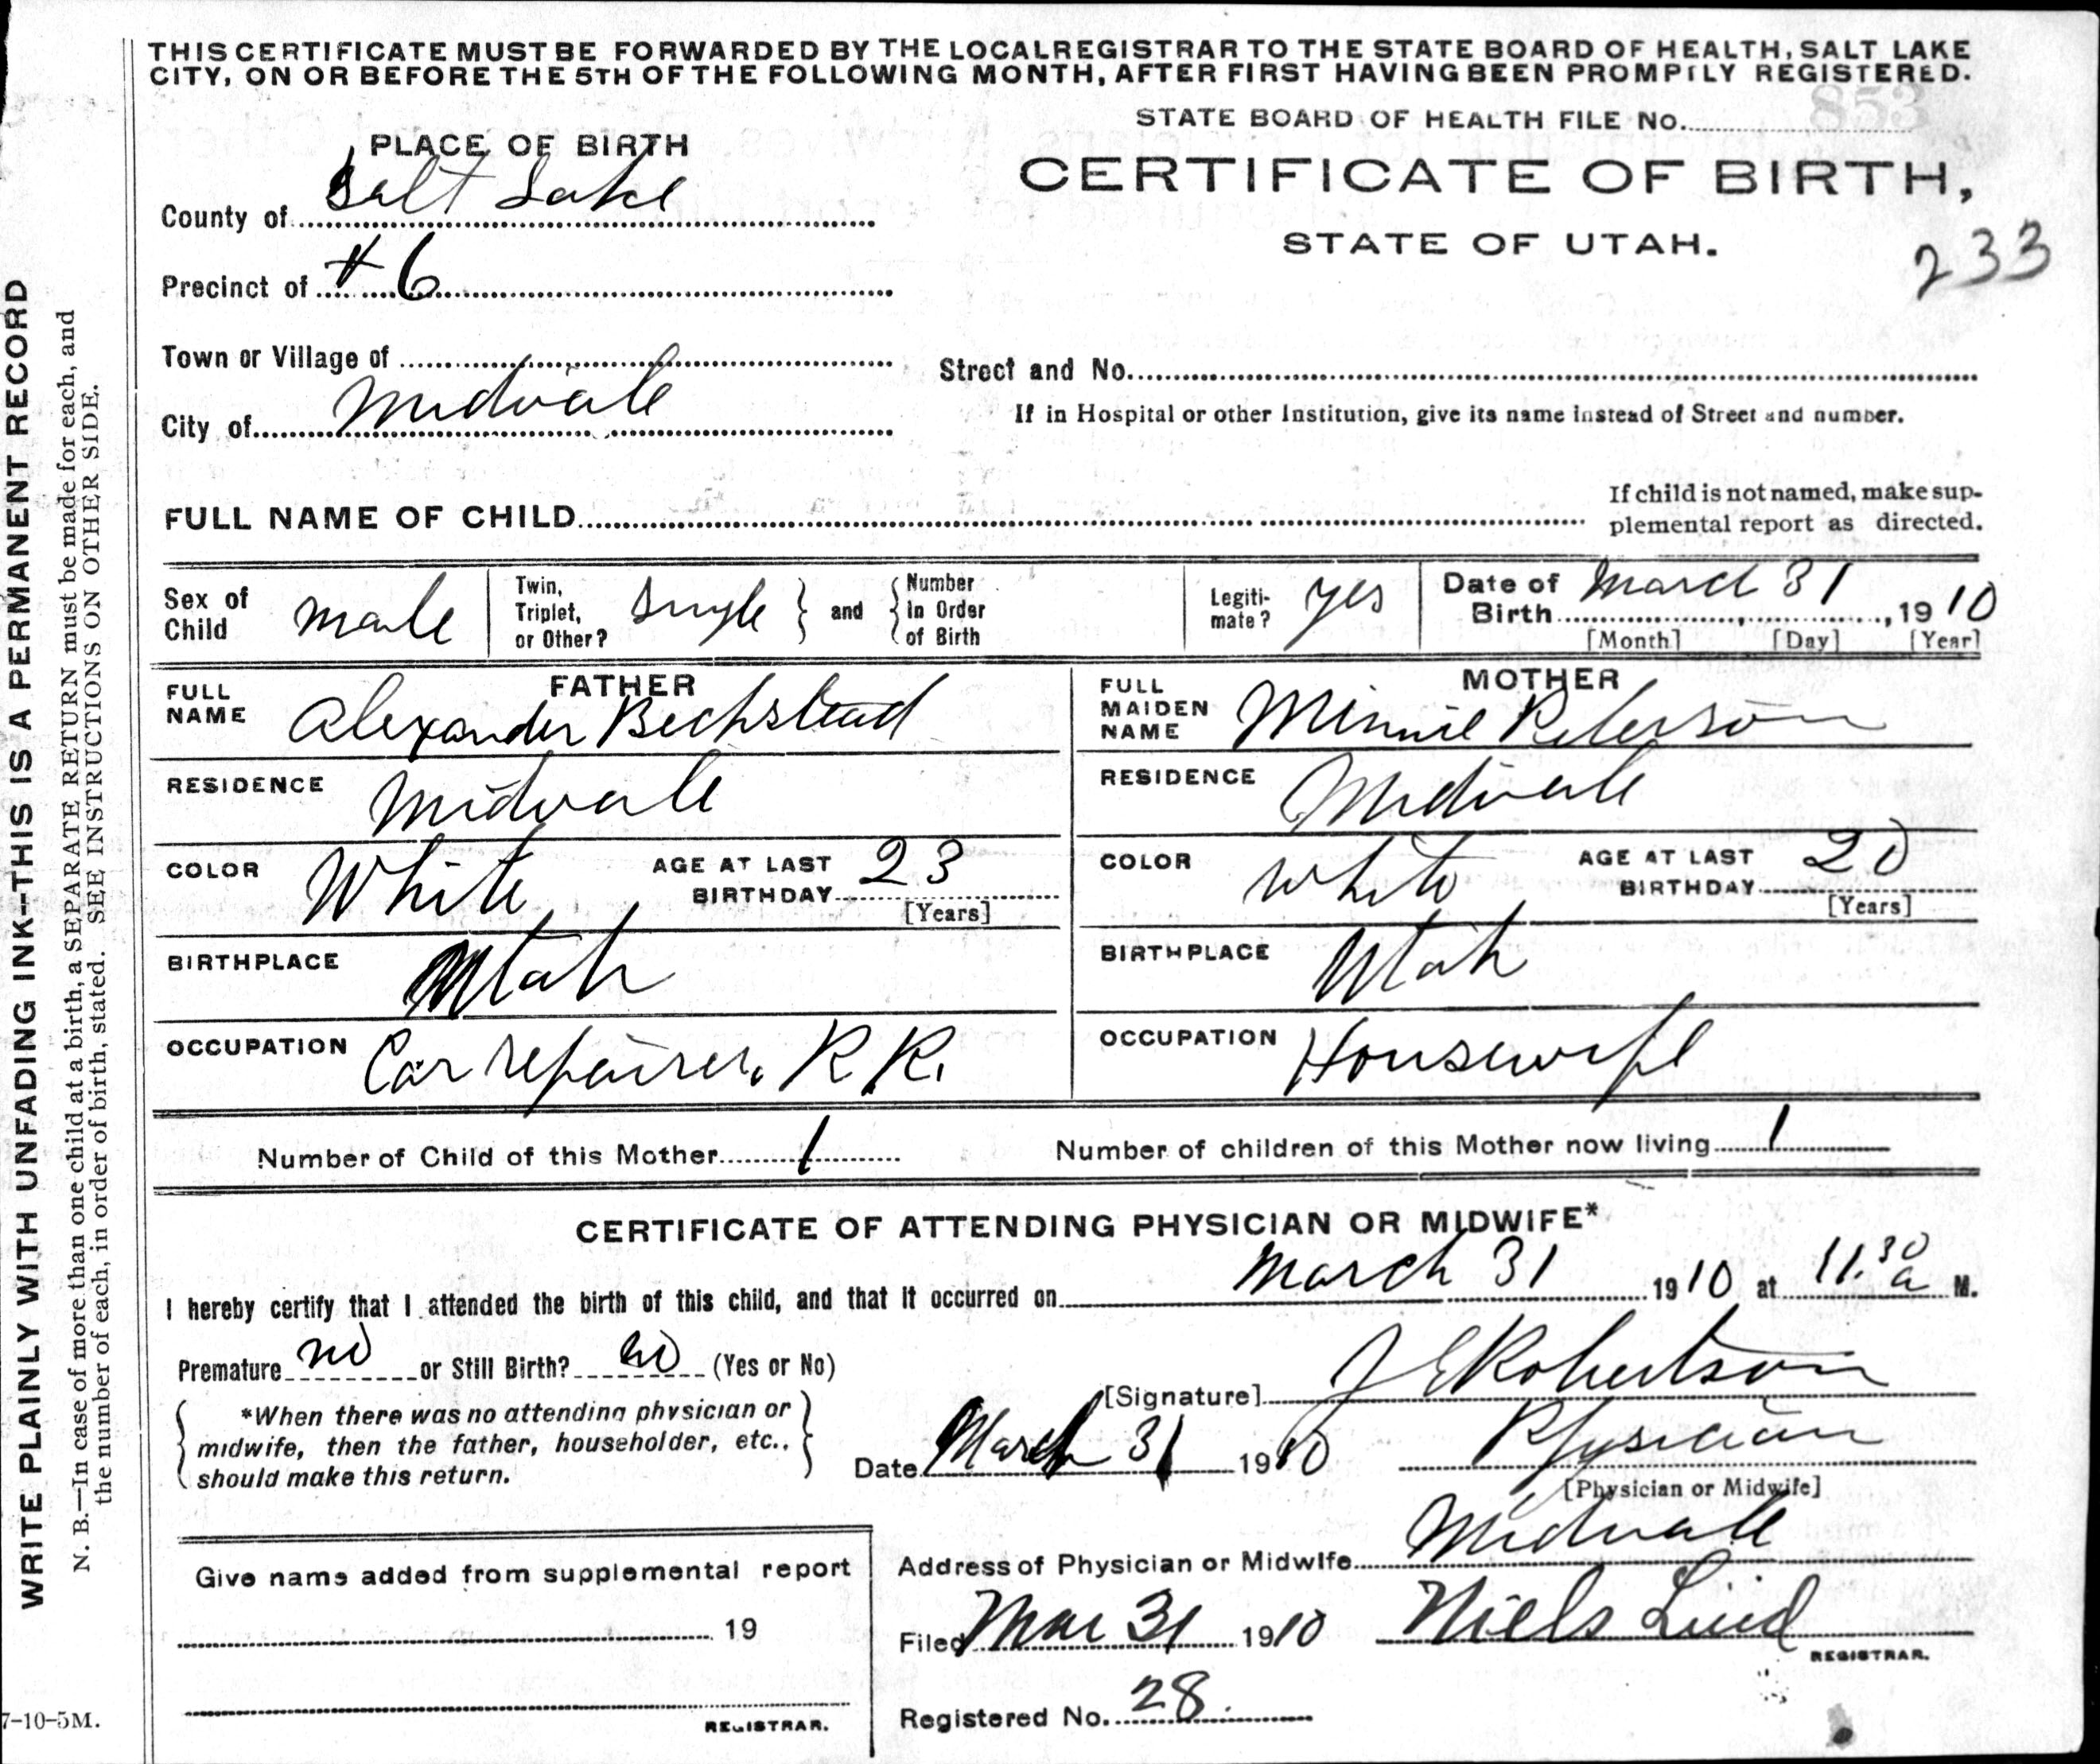 THIS CERTIFICATE MUST BE FORWARDED BY THE LOCAL REGISTRAR TO THE STATE BOARD OF HEALTH, SALT LAKE
CITY, ON OR BEFORE THE 5TH OF THE FOLLOWING MONTH, AFTER FIRST HAVING BEEN PROMPTLY REGISTERED.
STATE BOARD OF HEALTH FILE No. 853
PLACE OF BIRTH
CERTIFICATE OF BIRTH,
STATE OF UTAH.
233
County of Salt Lake
Precinct of # 6
Town or Village of
Street and No.
City of Midvale
If in Hospital or other Institution, give its name instead of Street and number.
FULL NAME OF CHILD
If child is not named, make sup-
plemental report as directed.
Sex of
Child male
Twin,
Triplet,
or Other? Single
and
Number
in Order
of Birth
Legiti-
mate? yes
Date of
Birth March 31, 1910
[Month] [Day] [Year]
FATHER
FULL
NAME Alexander Bechstead
RESIDENCE Midvale
COLOR White
AGE AT LAST
BIRTHDAY 23
[Years]
BIRTHPLACE Utah
OCCUPATION Car repairer, R.R.
MOTHER
FULL
MAIDEN
NAME Minnie Peterson
RESIDENCE Midvale
COLOR White
AGE AT LAST
BIRTHDAY 20
[Years]
BIRTHPLACE Utah
OCCUPATION Housewife
Number of Child of this Mother 1
Number of children of this Mother now living 1
CERTIFICATE OF ATTENDING PHYSICIAN OR MIDWIFE*
I hereby certify that I attended the birth of this child, and that it occurred on March 31 1910 at 11.30 a M.
Premature no or Still Birth? no (Yes or No)
[Signature] J E Robertson
*When there was no attending physician or
midwife, then the father, householder, etc.,
should make this return.
Date March 31 1910
Physician
[Physician or Midwife]
Address of Physician or Midwife Midvale
Give name added from supplemental report
19
REGISTRAR.
Filed Mar 31 1910 Niels Lind
REGISTRAR.
Registered No. 28.
WRITE PLAINLY WITH UNFADING INK--THIS IS A PERMANENT RECORD
N. B.—In case of more than one child at a birth, a SEPARATE RETURN must be made for each, and
the number of each, in order of birth, stated. SEE INSTRUCTIONS ON OTHER SIDE.
7-10-5M.